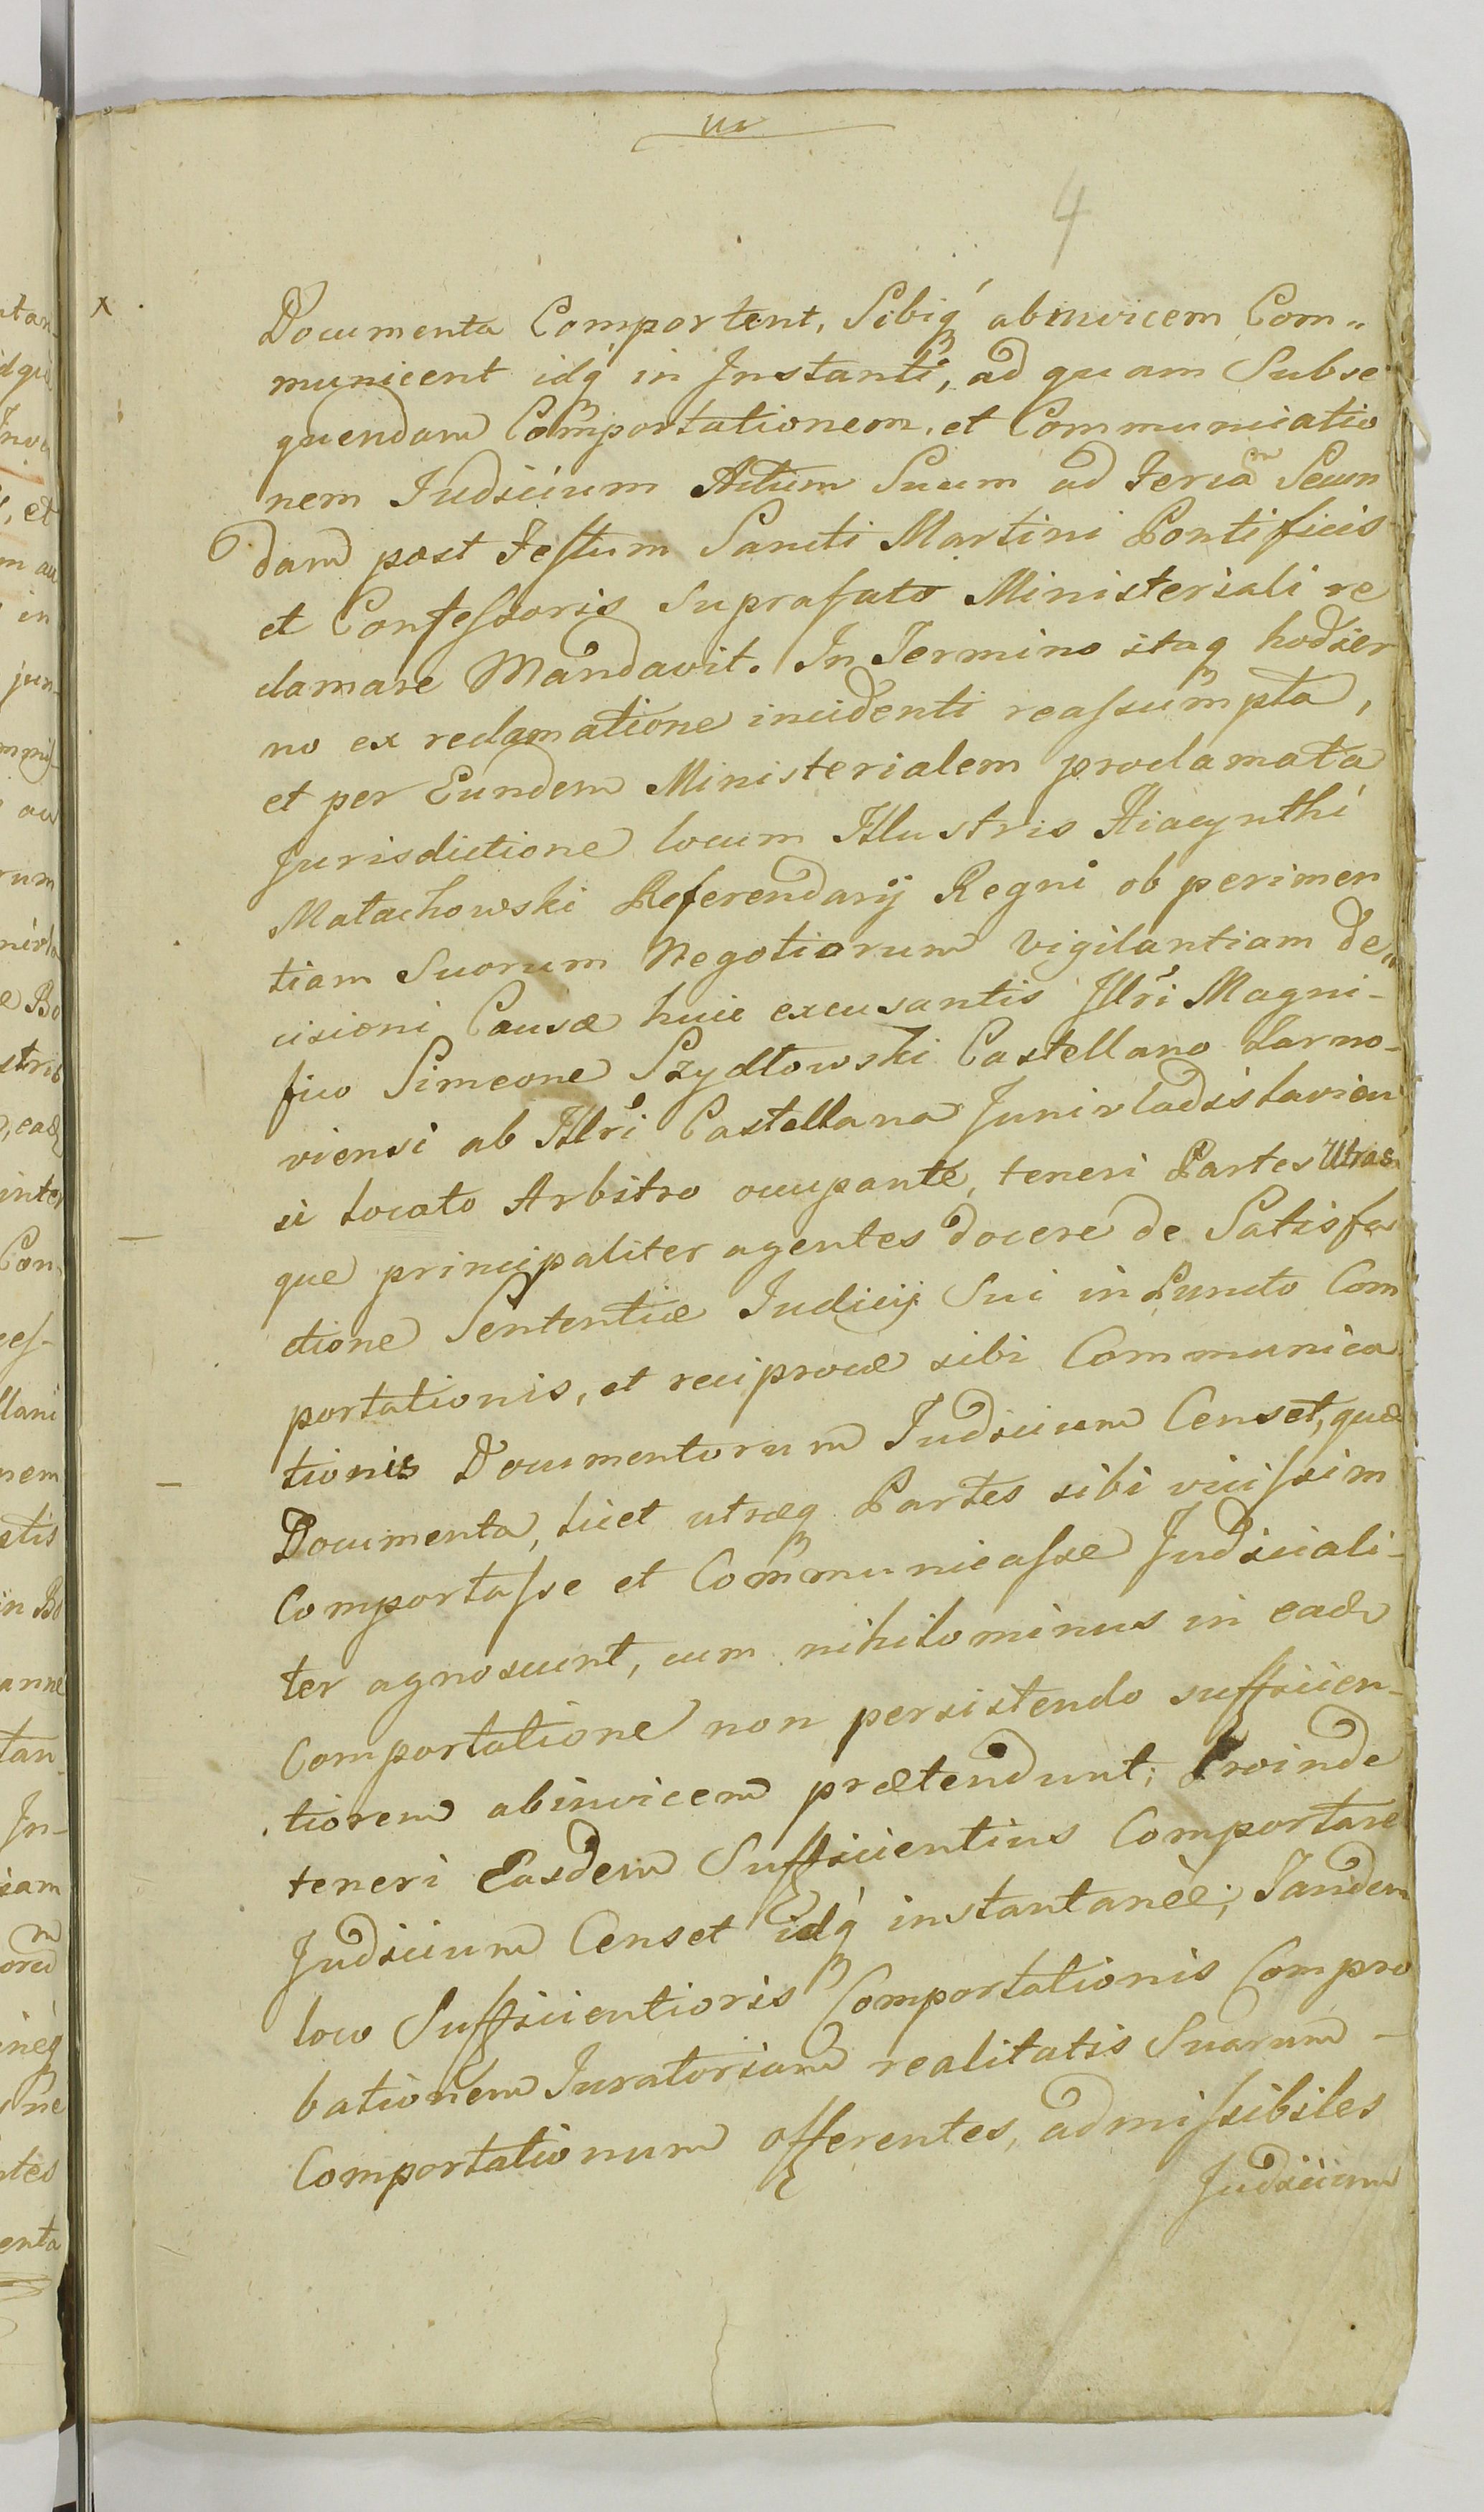 4
Documenta Comportent, Sibiq́ abinvicem Com„
municent idq́ in Instanti, ad quam Subse
quendam Comportationem, et Communicatio
nem Judicium Actum Suum ad Feriam Secun
dam post Festum Sancti Martini Pontificis
et Confessoris Suprafato Ministeriali re
clamare Mandavit. In Termino itaq hodier
no ex reclamatione incidenti reassumpta,
et per Eundem Ministerialem proclamata
Jurisdictione locum Illustris Hiacynthi
Małachowski Referendarij Regni ob perimen
tiam Suorum Negotiorum vigilantiam de„
cisioni Causæ huic excusantis Illri Magni-
fico Simeone Szydłowski Castellano Zarno-
viensi ab Illri Castellana Junivladislavien
si locato Arbitro occupante, teneri Partes Utras
que principaliter agentes docere de Satisfa
ctione Sententiæ Judicij Sui in Puncto Com
portationis, et reciprocæ sibi Communica
tionis Documentorum Judicium Censet, quæ
Documenta, licet utræq Partes sibi vicissim
Comportasse et Communicasse Judiciali-
ter agnoscunt, cum nihilominus in ead
Comportatione non persistendo sufficien-
tiorem abinvicem prætendunt; Proinde
teneri Easdem Sufficientius Comportare
Judicium Censet idq́ instantanèe; Tandem
loco Sufficientioris Comportationis Compro
bationem Juratoriam realitatis Suarum -
Comportationum offerentes, admissibiles
Judicium